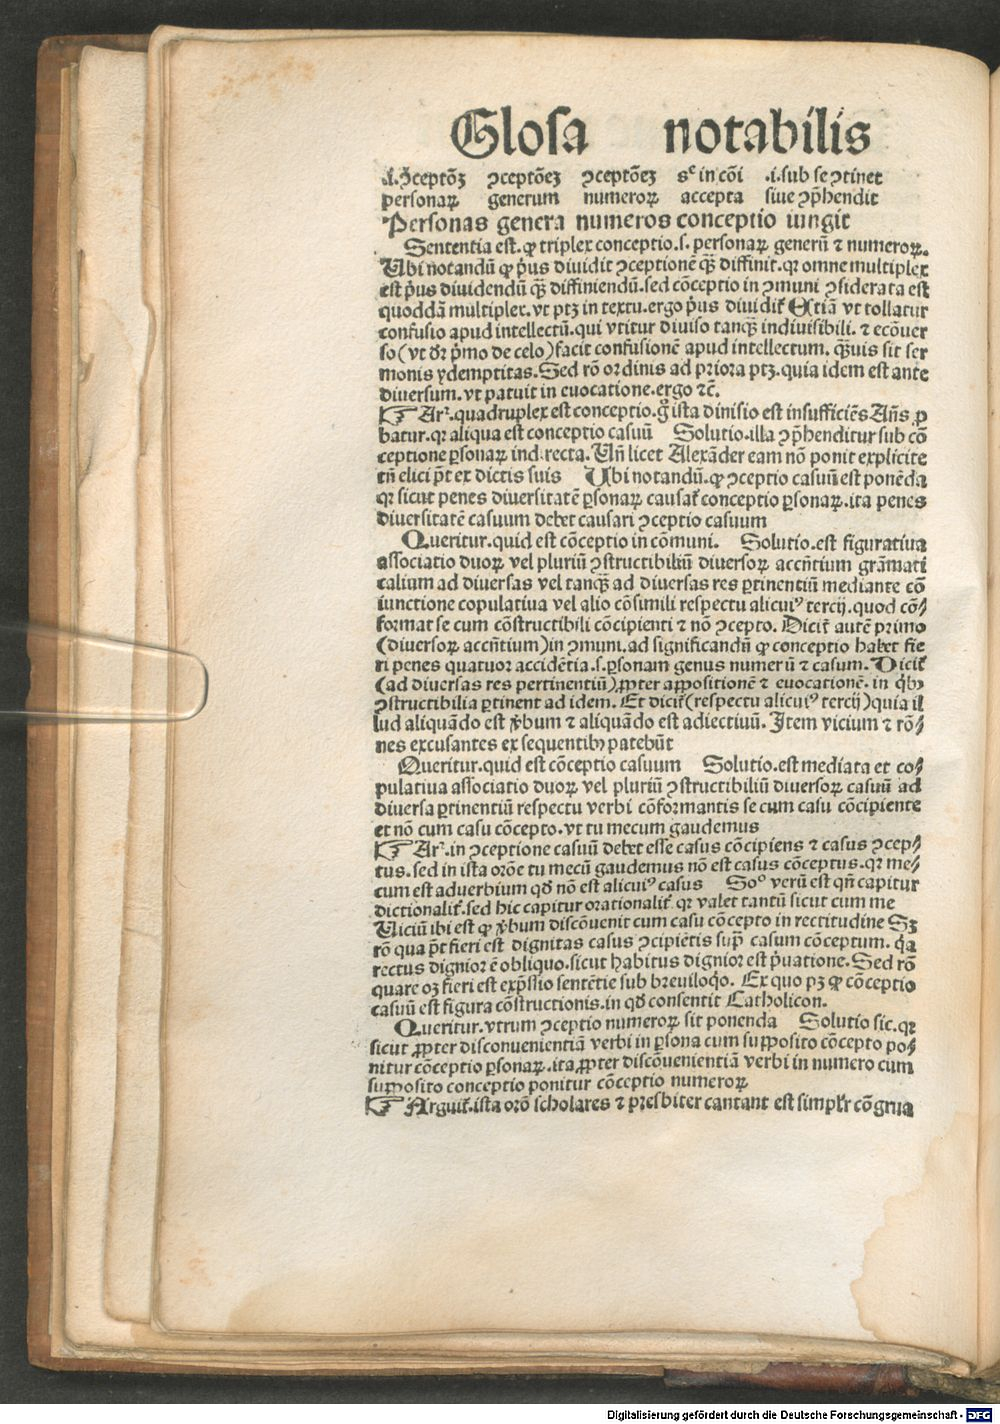 Glosa notabilis
.i.ꝯceptōꝫ ꝯceptōeꝫ ꝯceptōeꝫ sꝫ in cōi .i.sub se ꝯtinet
personaꝝ generum numeroꝝ accepta siue ꝯp̄hendit
Personas genera numeros conceptiio iungit
Sententia est. ꝙ triplex conceptio.s. personaꝝ generū ⁊ numeroꝝ.
Ubi notandū ꝙ p̄us diuidit ꝯceptionē qꝫ̄ diffinit.qꝛ omne multiplex
est p̄us diuidendū qꝫ̄ diffiniendū.sed cōceptio in ꝯmuni ꝯsiderata est
quoddā multiplex. vt ptꝫ in textu.ergo p̄us diuidit̄ Etiā vt tollatur
confusio apud intellectū.qui vtitur diuiso tanqꝫ̄ indiuisibili. ⁊ ecōuer
so (vt dr̄ p̄mo de celo) facit confusionē apud intellectum. qꝫ̄uis sit ser
monis ydemptitas. Sed rō ordinis ad priora ptꝫ. quia idem est ante
diuersum. vt patuit in euocatione.ergo ⁊c̄.
☞ Arꝛ. quadruplex est conceptio.g̊ ista diuisio est insufficiēs Añs ꝓ
batur. qꝛ aliqua est conceptio casuū Solutio.illa ꝯp̄henditur sub cō
ceptione ꝑsonaꝝ indirecta. Uñ licet Alexāder eam nō ponit explicite
tñ elici p̄t ex dictis suis Ubi notandū. ꝙ ꝯceptio casuū est ponēda
qꝛ sicut penes diuersitatē ꝑsonaꝝ causat̄ conceptio ꝑsonaꝝ.ita penes
diuersitatē casuum debet causari ꝯceptio casuum
Queritur. quid est cōceptio in cōmuni. Solutio.est figuratiua
associatio duoꝝ vel pluriū ꝯstructibiliū diuersoꝝ accñtium grāmati
calium ad diuersas vel tanqꝫ̄ ad diuersas res ꝑtinentiū mediante cō
iunctione copulatiua vel alio cōsimili respectu alicuiꝰ tercij.quod cō⸗
format se cum cōstructibili cōcipienti ⁊ nō ꝯcepto. Dicit̄ autē primo
(diuersoꝝ accñtium) in ꝯmuni. ad significandū ꝙ conceptio habet fie
ri penes quatuor accidētia.s. ꝑsonam genus numerū ⁊ casum. Dicit̄
(ad diuersas res pertinentiū) ꝓpter apositionē ⁊ euocationē. in qͥbꝫ
ꝯstructibilia ꝑtinent ad idem. Et dicit̄ (respectu alicuiꝰ tercij) quia il
lud aliquādo est v̄bum ⁊ aliquādo est adiectiuū. Item vicium ⁊ rō⸗
nes excusantes ex sequentibꝫ patebūt
Queritur. quid est cōceptio casuum Solutio.est mediata et co⸗
pulatiua associatio duoꝝ vel pluriū ꝯstructibiliū diuersoꝝ casuū ad
diuersa ꝑtinentiū respectu verbi cōformantis se cum casu cōcipiente
et nō cum casu cōcepto.vt tu mecum gaudemus
☞ Arꝛ. in ꝯceptione casuū debet esse casus cōcipiens ⁊ casus ꝯcep⸗
tus. sed in ista orōe tu mecū gaudemus nō est casus cōceptus. qꝛ me⸗
cum est aduerbium qd̄ nō est alicuiꝰ casus Soº verū est qñ capitur
dictionalit̄. sed hic capitur orationalit̄. qꝛ valet tantū sicut cum me
Uiciū ibi est ꝙ v̄bum discōuenit cum casu cōcepto in rectitudine Sꝫ
rō qua p̄t fieri est dignitas casus ꝯcipiētis supꝛ̄ casum cōceptum. qꝛ̄a
rectus dignior ē obliquo.sicut habitus dignior est p̄uatione. Sed rō
quare oꝫ fieri est exp̄ssio sentētie sub breuiloq̊. Ex quo pꝫ ꝙ cōceptio
casuū est figura cōstructionis. in qd̄ consentit Catholicon.
Queritur. vtrum ꝯceptio numeroꝝ sit ponenda Solutio sic. qꝛ
sicut ꝓpter disconuenientiā verbi in ꝑsona cum suposito cōcepto po⸗
nitur cōceptio ꝑsonaꝝ. ita ꝓpter discōuenientiā verbi in numero cum
suposito conceptio ponitur cōceptio numeroꝝ
☞ Arguit̄. ista orō scholares ⁊ presbiter cantant est simplr̄ cōgrua
Digitalisierung gefördert durch die Deutsche Forschungsgemeinschaft - DFG